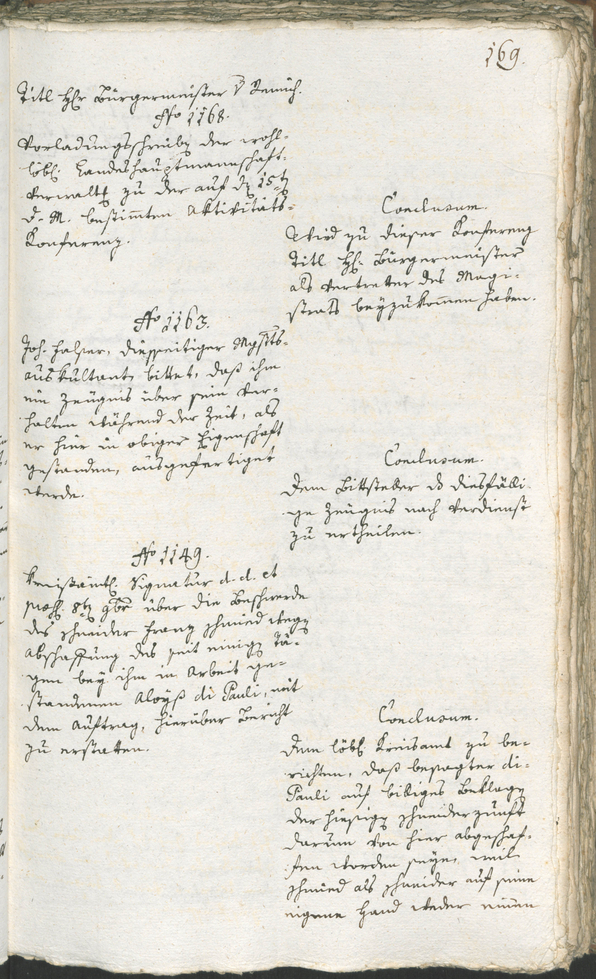 169.
Titl H: Bürgermeister v Remich.
No 1168.
Vorladungsschreiben der wohl-
löbl. Landeshauptmannschaft-
Verwaltg zu der auf den 15t
d. M. bestimmten Aktivitäts-
Konferenz.
Conclusum.
Wird zu dieser Konferenz
Titl H: Bürgermeister
als Vertreter des Magi-
strats beyzukommen haben.
No 1163.
Joh. Halser, diesseitiger
Auskultant, bittet, daß ihm
ein Zeugnis über sein Ver-
halten während der Zeit, als
er hier in obiger Eigenschaft
gestanden, ausgefertiget
werde.
Conclusum.
Dem Bittsteller das diesfälli-
ge Zeugnis nach Verdienst
zu ertheilen.
No 1149.
Kreisämtl. Signatur d. d. et
praes. 8t 9br über die Beschwerde
des Schneider Franz Schmied wegen
Abschaffung des seit einigen Tä-
gen bey ihm in Arbeit ge-
standenen Aloys di Pauli, mit
dem Auftrag, hierüber Bericht
zu erstatten.
Conclusum.
Dem löbl. Kreisamt zu be-
richten, daß besagter di-
Pauli auf billiges Beklagen
der hiesigen Schneiderzunft
darum von hier abgeschaf-
fen worden seye, weil
Schmied als Schneider auf seine
eigene Hand weder einen